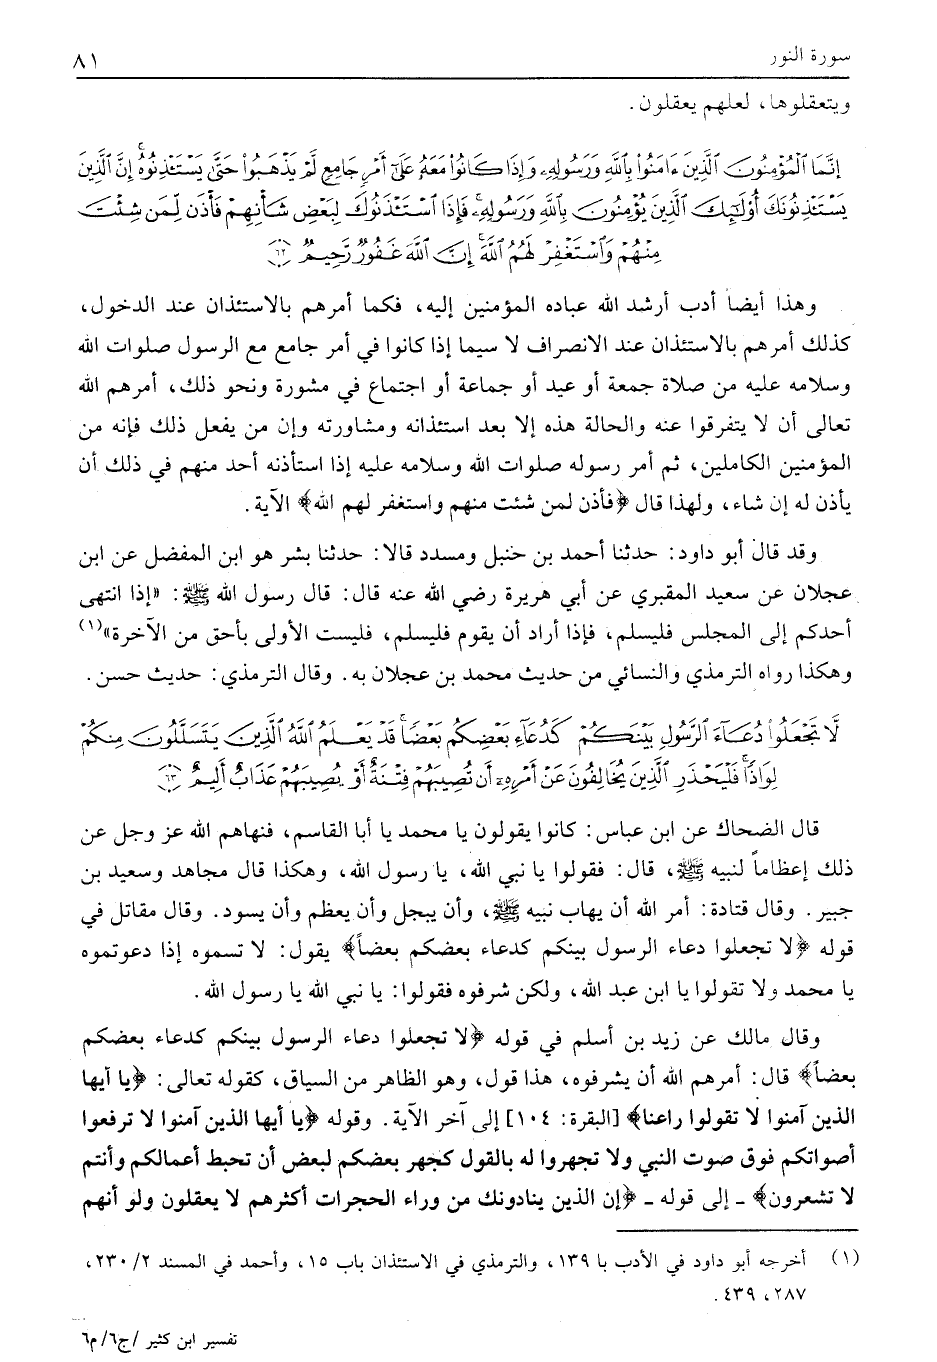 سورة النور ٨١
ويتعقلوها، لعلهم يعقلون.
إِنَّمَا الْمُؤْمِنُونَ الَّذِينَ ءَامَنُوا بِاللَّهِ وَرَسُولِهِ وَإِذَا كَانُوا مَعَهُ عَلَىٰ أَمْرٍ جَامِعٍ لَّمْ يَذْهَبُوا حَتَّىٰ يَسْتَئْذِنُوهُ إِنَّ الَّذِينَ
يَسْتَئْذِنُونَكَ أُوْلَٰئِكَ الَّذِينَ يُؤْمِنُونَ بِاللَّهِ وَرَسُولِهِ فَإِذَا اسْتَئْذَنُوكَ لِبَعْضِ شَأْنِهِمْ فَأْذَن لِّمَن شِئْتَ
مِنْهُمْ وَاسْتَغْفِرْ لَهُمُ اللَّهَ إِنَّ اللَّهَ غَفُورٌ رَّحِيمٌ ﴿٦٢﴾
وهذا أيضاً أدب أرشد الله عباده المؤمنين إليه، فكما أمرهم بالاستئذان عند الدخول،
كذلك أمرهم بالاستئذان عند الانصراف لا سيما إذا كانوا في أمر جامع مع الرسول صلوات الله
وسلامه عليه من صلاة جمعة أو عيد أو جماعة أو اجتماع في مشورة ونحو ذلك، أمرهم الله
تعالى أن لا يتفرقوا عنه والحالة هذه إلا بعد استئذانه ومشاورته وإن من يفعل ذلك فإنه من
المؤمنين الكاملين، ثم أمر رسوله صلوات الله وسلامه عليه إذا استأذنه أحد منهم في ذلك أن
يأذن له إن شاء، ولهذا قال ﴿فأذن لمن شئت منهم واستغفر لهم الله﴾ الآية.
وقد قال أبو داود: حدثنا أحمد بن حنبل ومسدد قالا: حدثنا بشر هو ابن المفضل عن ابن
عجلان عن سعيد المقبري عن أبي هريرة رضي الله عنه قال: قال رسول الله ﷺ: «إذا انتهى
أحدكم إلى المجلس فليسلم، فإذا أراد أن يقوم فليسلم، فليست الأولى بأحق من الآخرة»(١)
وهكذا رواه الترمذي والنسائي من حديث محمد بن عجلان به. وقال الترمذي: حديث حسن.
لَّا تَجْعَلُوا دُعَاءَ الرَّسُولِ بَيْنَكُمْ كَدُعَاءِ بَعْضِكُم بَعْضًا قَدْ يَعْلَمُ اللَّهُ الَّذِينَ يَتَسَلَّلُونَ مِنكُمْ
لِوَاذًا فَلْيَحْذَرِ الَّذِينَ يُخَالِفُونَ عَنْ أَمْرِهِ أَن تُصِيبَهُمْ فِتْنَةٌ أَوْ يُصِيبَهُمْ عَذَابٌ أَلِيمٌ ﴿٦٣﴾
قال الضحاك عن ابن عباس: كانوا يقولون يا محمد يا أبا القاسم، فنهاهم الله عز وجل عن
ذلك إعظاماً لنبيه ﷺ، قال: فقولوا يا نبي الله، يا رسول الله، وهكذا قال مجاهد وسعيد بن
جبير. وقال قتادة: أمر الله أن يهاب نبيه ﷺ، وأن يبجل وأن يعظم وأن يسود. وقال مقاتل في
قوله ﴿لا تجعلوا دعاء الرسول بينكم كدعاء بعضكم بعضاً﴾ يقول: لا تسموه إذا دعوتموه
يا محمد ولا تقولوا يا ابن عبد الله، ولكن شرفوه فقولوا: يا نبي الله يا رسول الله.
وقال مالك عن زيد بن أسلم في قوله ﴿لا تجعلوا دعاء الرسول بينكم كدعاء بعضكم
بعضاً﴾ قال: أمرهم الله أن يشرفوه، هذا قول، وهو الظاهر من السياق، كقوله تعالى: ﴿يا أيها
الذين آمنوا لا تقولوا راعنا﴾ [البقرة: ١٠٤] إلى آخر الآية. وقوله ﴿يا أيها الذين آمنوا لا ترفعوا
أصواتكم فوق صوت النبي ولا تجهروا له بالقول كجهر بعضكم لبعض أن تحبط أعمالكم وأنتم
لا تشعرون﴾ ـ إلى قوله ـ ﴿إن الذين ينادونك من وراء الحجرات أكثرهم لا يعقلون ولو أنهم
(١) أخرجه أبو داود في الأدب با ١٣٩، والترمذي في الاستئذان باب ١٥، وأحمد في المسند ٢/ ٢٣٠،
٢٨٧، ٤٣٩.
تفسير ابن كثير /ج٦/ م٦